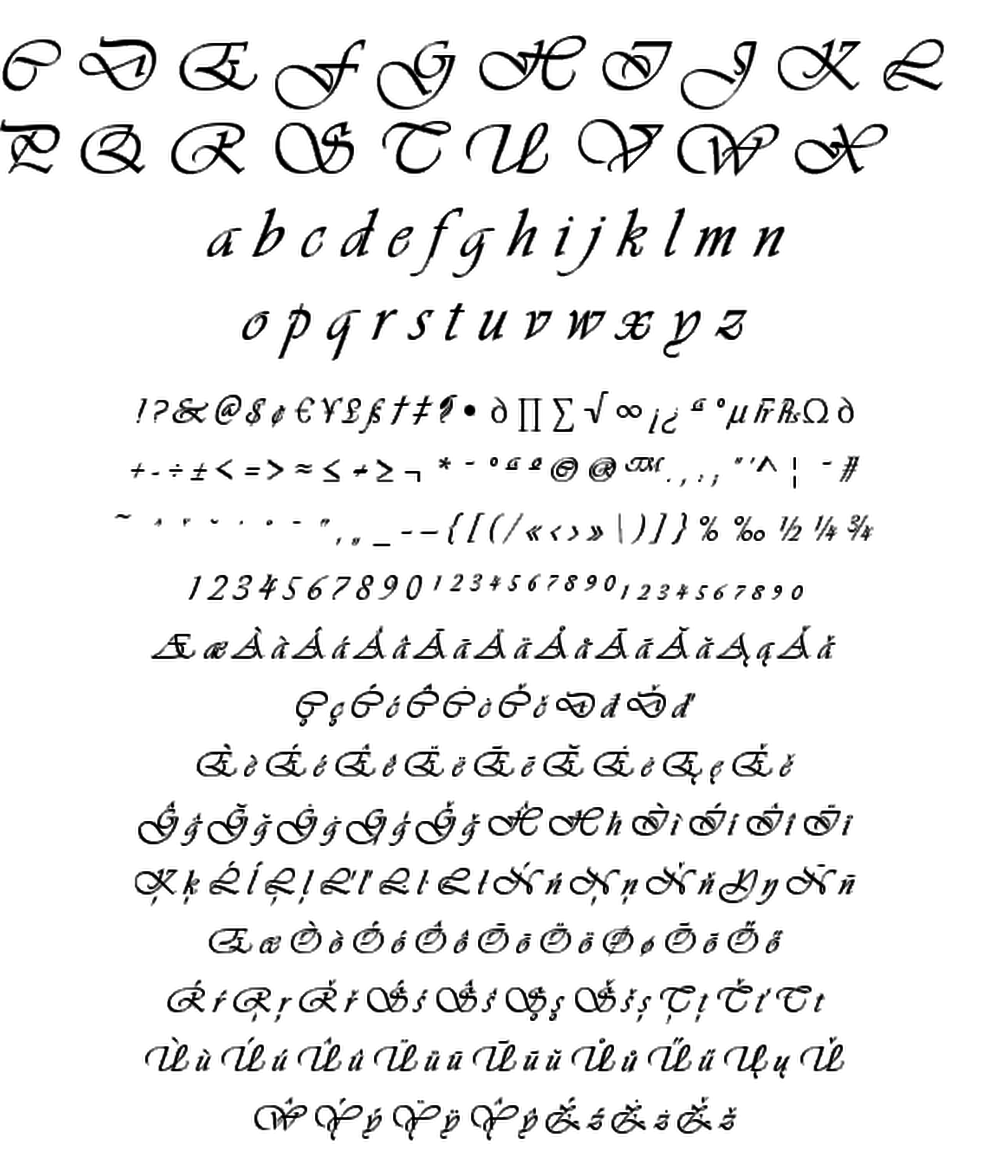 C D E F G H I J K L
P Q R S T U V W X
a b c d e f g h i j k l m n
o p q r s t u v w x y z
! ? & @ $ ¢ € ¥ £ ß † ‡ ¶ • ∂ ∏ ∑ √ ∞ ¡ ¿ ª º µ ₨ Ω ∂
+ - ÷ ± < = > ≈ ≤ ≠ ≥ ¬ * - º ª º © ® ™ . , : ; " ' ^ ¦ - #
~ ˘ ˙ ° - " , „ _ – — { [ ( / « ‹ › » \ ) ] } % ‰ ½ ¼ ¾
1 2 3 4 5 6 7 8 9 0 1 2 3 4 5 6 7 8 9 0 1 2 3 4 5 6 7 8 9 0
Æ æ À à Á á Â â Ã ã Ä ä Å å Ā ā Ă ă Ą ą Ǎ ǎ
Ç ç Ć ć Ĉ Ċ ċ Č č Đ đ Ď ď
È è É é Ê ê Ë ë Ē ē Ĕ Ė ė Ę ę Ě ě
Ĝ ĝ Ğ ğ Ġ ġ Ģ ģ Ǧ ǧ Ĥ Ħ ħ Ì ì Í í Î î Ï ï
Ķ ķ Ĺ ĺ Ļ ļ Ľ ľ Ŀ ŀ Ł ł Ń ń Ņ ņ Ň ň Ŋ ŋ Ñ ñ
Œ œ Ò ò Ó ó Ô ô Õ õ Ö ö Ø ø Ō ō Ő ő
Ŕ ŕ Ŗ ŗ Ř ř Ś ś Ŝ ŝ Ş ş Š š ș Ţ ţ Ť ť Ŧ ŧ
Ù ù Ú ú Û û Ü ü ū Ū ũ ŭ Ů ů Ű ű Ų ų Ǔ
Ŵ Ý ý Ÿ ÿ Ŷ ŷ Ź ź Ż ż Ž ž